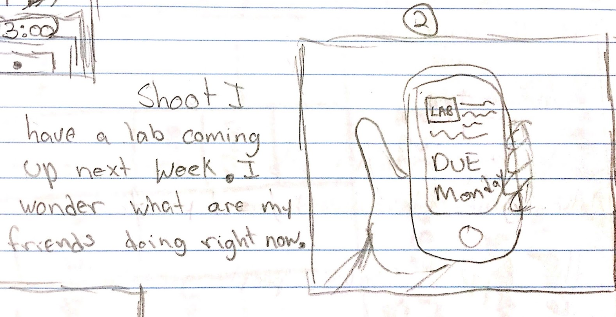 3:00
2
Shoot I
have a lab coming
up next week. I
wonder what are my
friends doing right now.
LAB
DUE
Monday